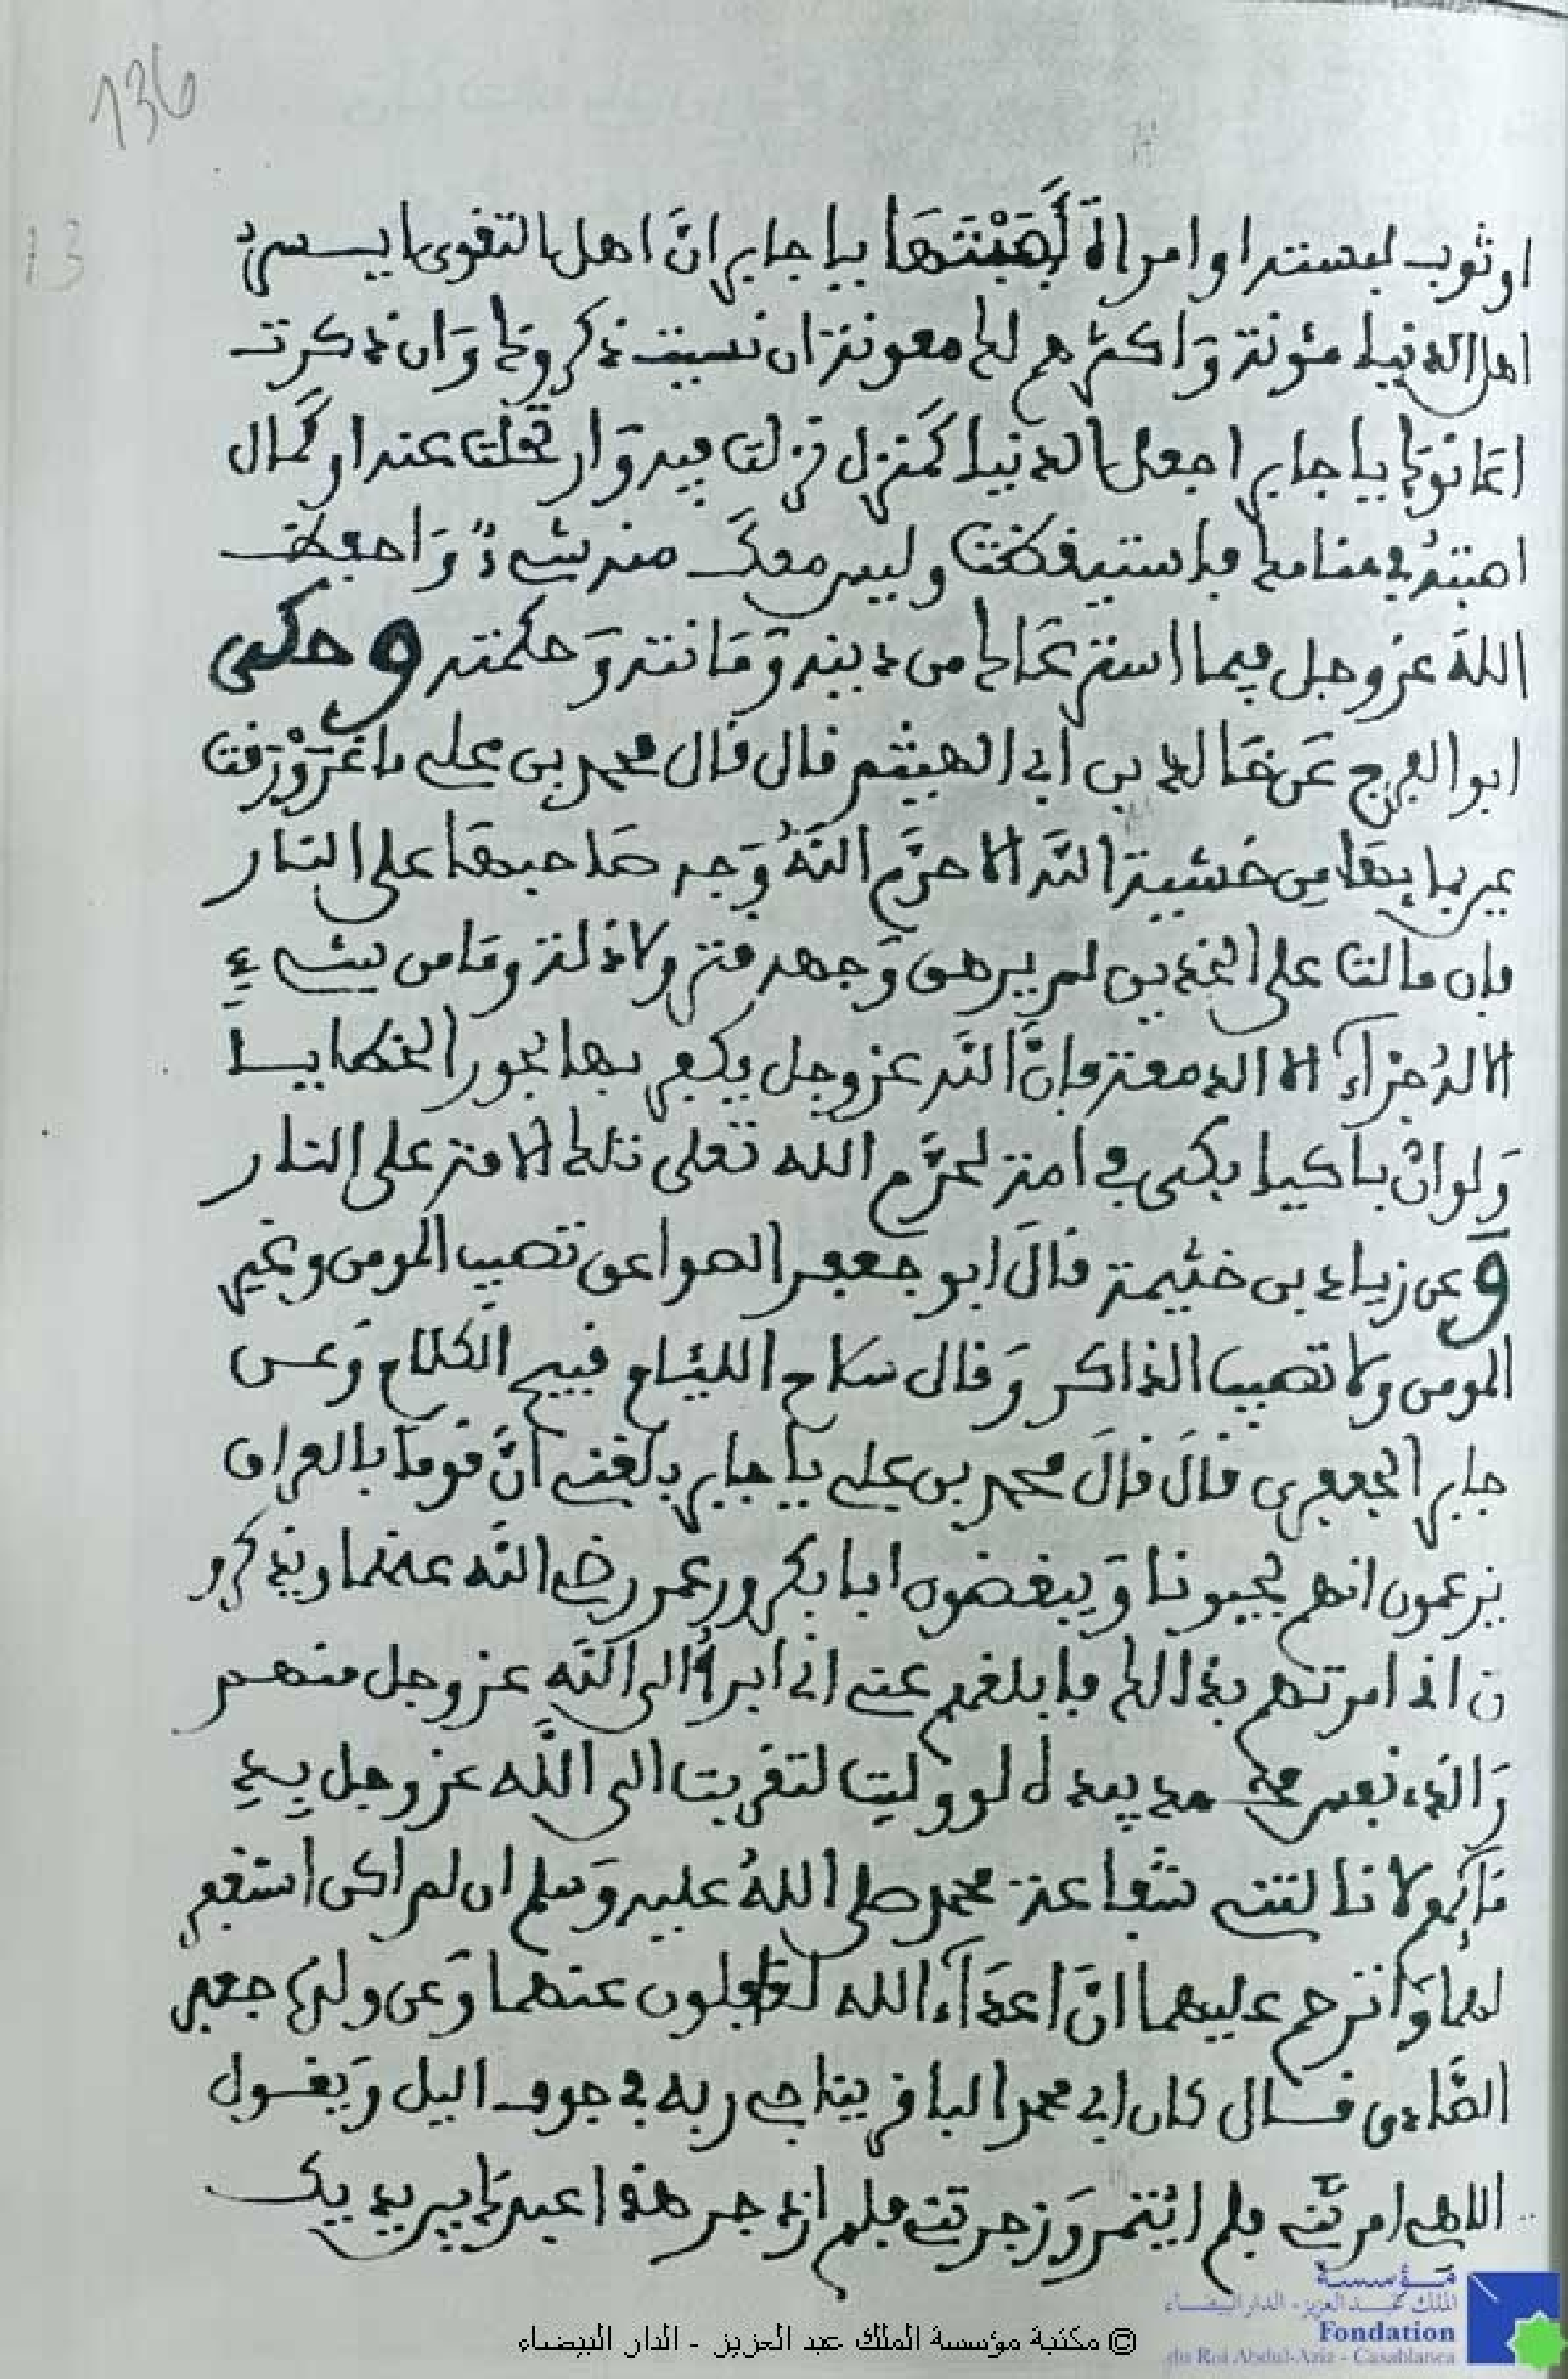 136
13
او ثوب لبسته او امراة لهبتها يا جابر ان اهل التقوى ايسر
اهل الدنيا مئونة وَاكثرهم لك معونة ان نسيت ذكروك وَان ذكرت
اعانوك يا جابر اجعل الدنيا كمنزل نزلت فيه وَارتحلت عنه او كمال
اصبته في منامك فاستيقظت وليس معك منه شيءٌ وَاحفظ
اللهَ عز وجل فيما استرعاك من دينه وَ وَحكمته وحكى
ابو الفرج عَن خَالد بن ابي الهيثم قال قال محمد بن علي ما اغرَوْرَقت
عين بمايها من خشية الله الا حرَّم اللهُ وَجه صَاحبها على النار
فان سالت على الخدين لم يرهق وَجهه قتر ولا ذلة ومَا من شيءٍ
الا له جزآء الا الدمعة فانَّ الله عز وجل يكفر بها بحور الخطايا
وَلو انَّ باكيا بكى في امة لحرَّم الله تعلى تلك الامة على النار
وَعن زياد بن خثيمة قالَ ابو جعفر الصواعق تصيب المومن وغير
المومن ولا تصيب الذاكر وَقال سلاح اللئام قبيح الكلام وَعن
جابر الجعفي قالَ قالَ محمد بن علي يا جابر بلغني انَّ قومًا بالعراق
يزعمون انهم يحبونا وَيبغضون ابا بكر وعمر رضي الله عنهما ويذكرو
ن اني امرتهم بذالك فابلغهم عني اني ابرأ الى الله عز وجل منهم
وَالذي نفس محمد بيده لو وليت لتقربت الى الله عز وجل بِدِ
مَآئهم لا نالتني شفاعة محمد صلى اللهُ عليه وَسلم ان لم اكن استغفر
لهما وَاترحم عليهما انَّ اعدَآء الله لغافلون عنهما وَعن ولده جعفر
الصَّادق قال كان ابي محمد الباقر يناجي ربه في جوف اليل وَيقول
اللهي امرتني فلم ائتمر وَزجرتني فلم ازدجر هذا عبدك بين يديك
مؤسسة
الملك عبد العزيز - الدار البيضاء
Fondation
du Roi Abdul-Aziz - Casablanca
© مكتبة مؤسسة الملك عبد العزيز - الدار البيضاء